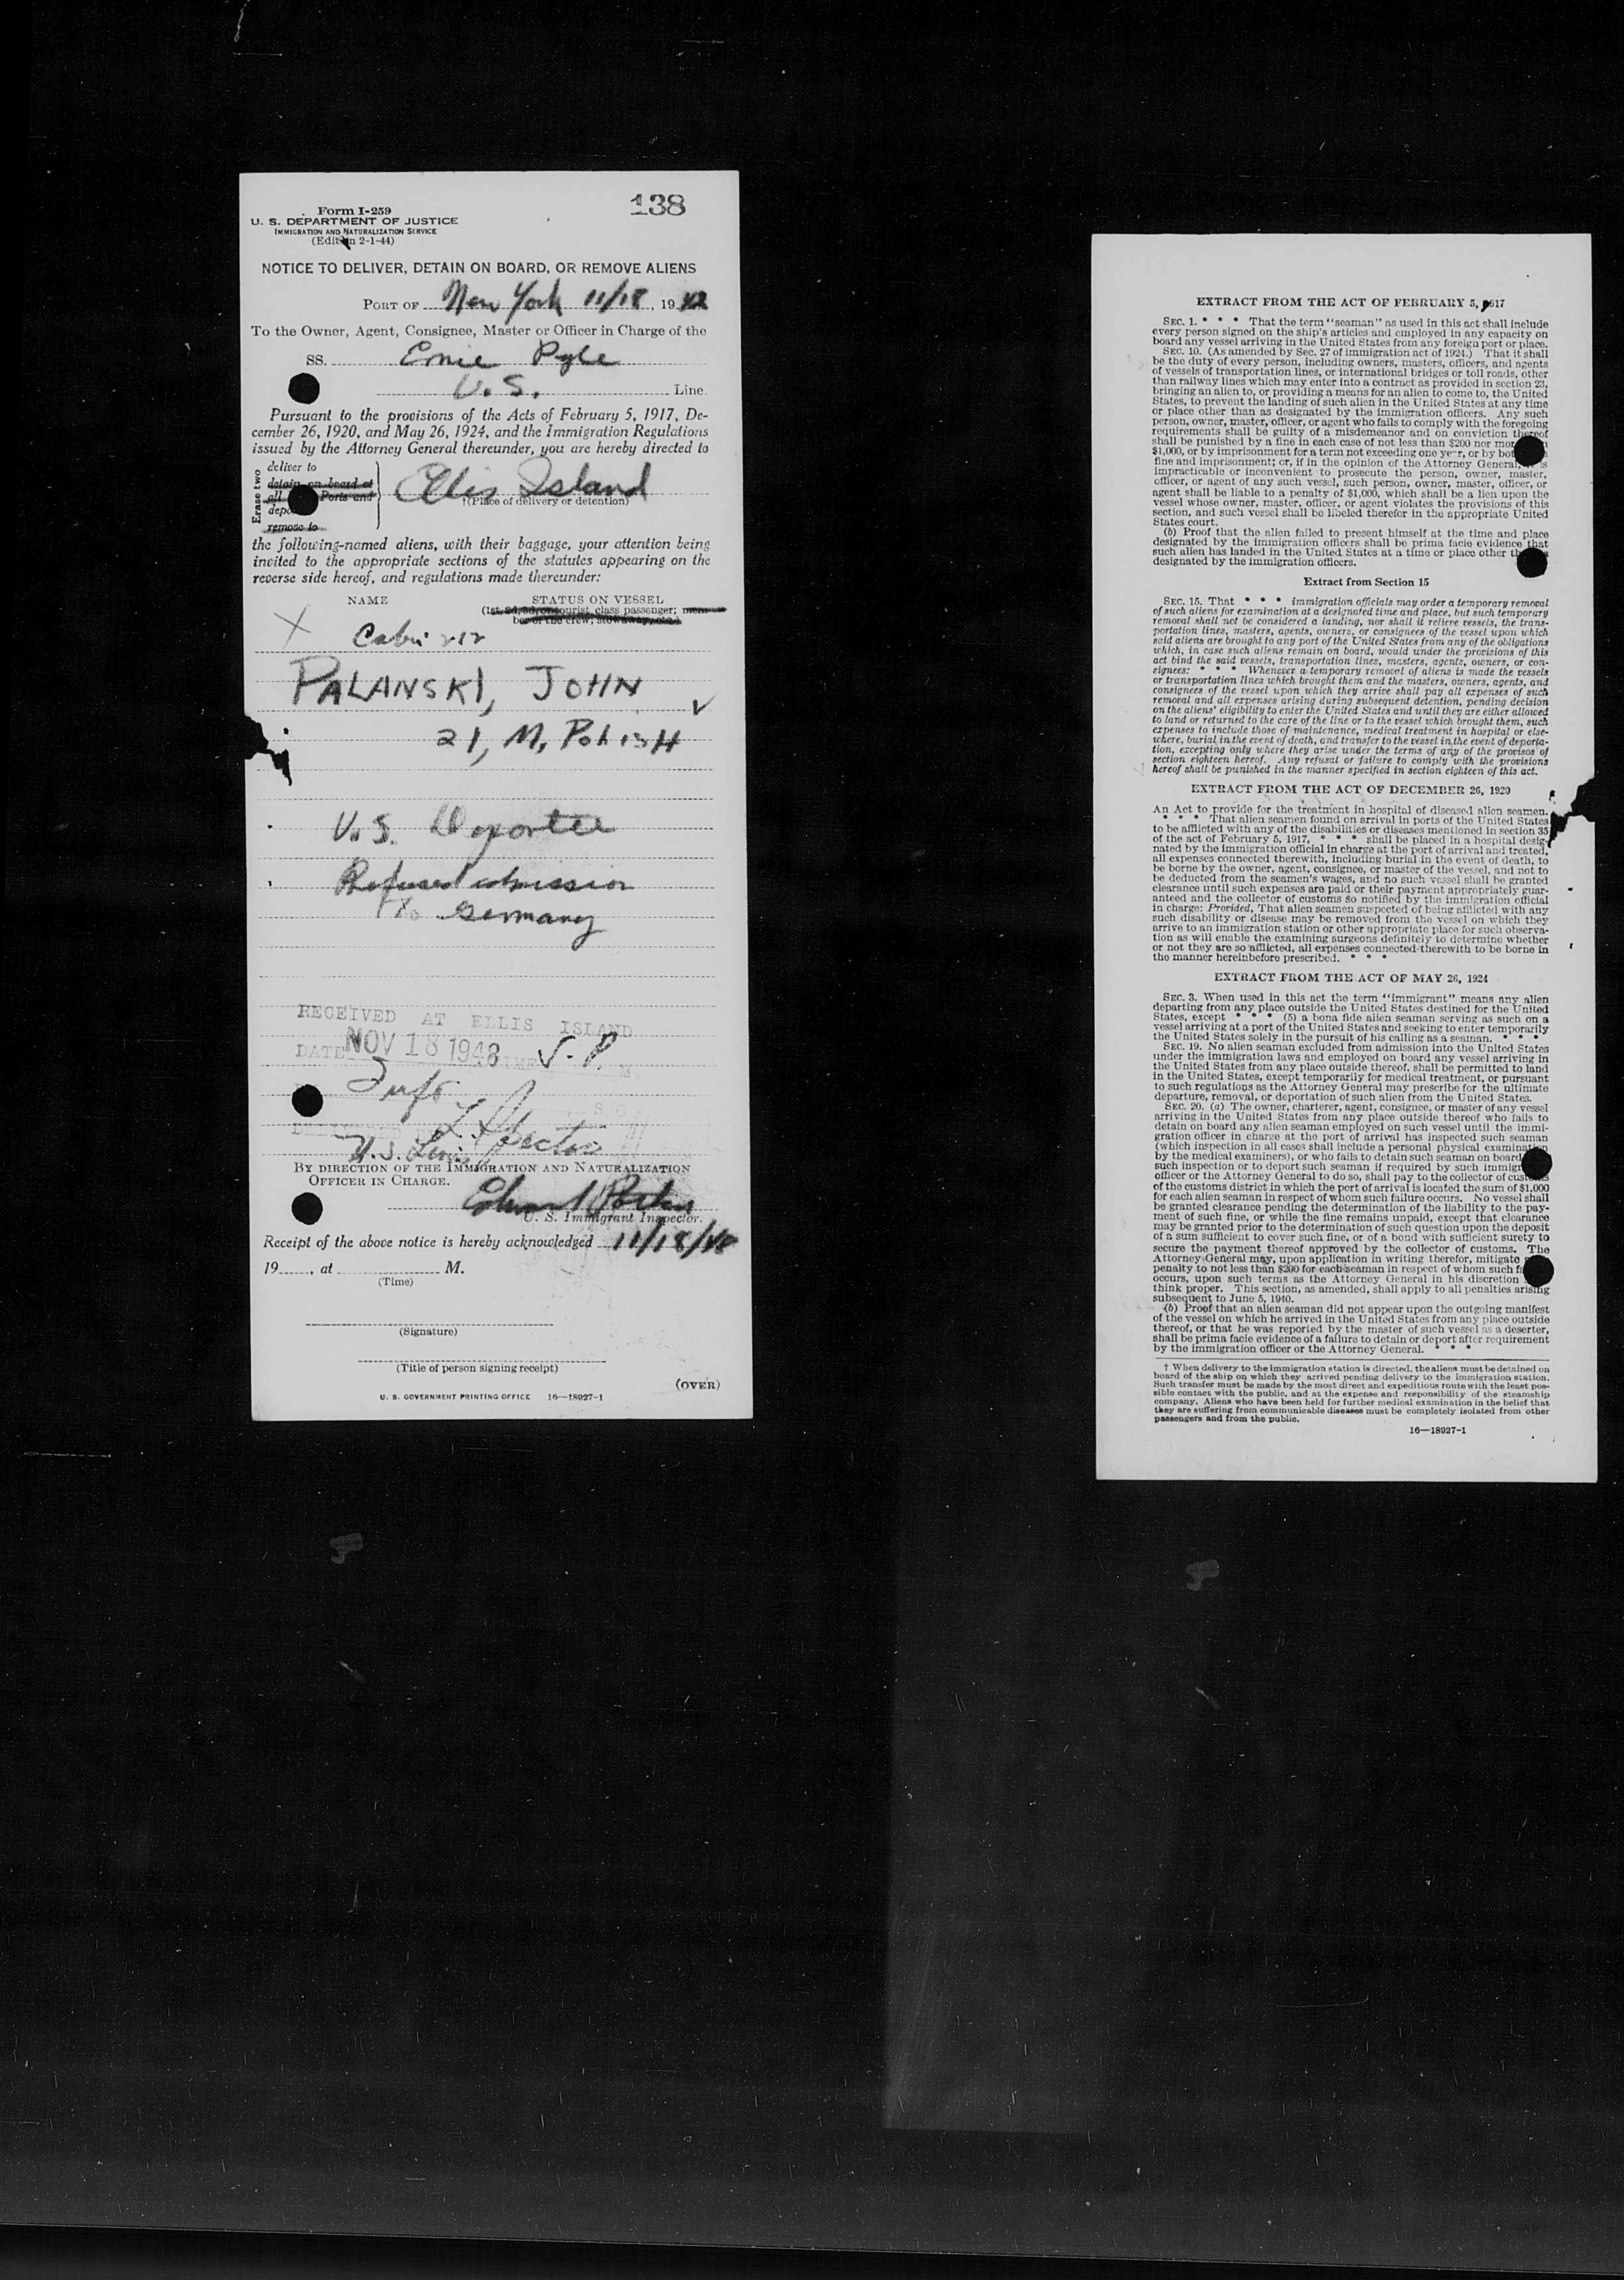 Form I-259
U. S. DEPARTMENT OF JUSTICE
IMMIGRATION AND NATURALIZATION SERVICE
(Edition 2-1-44)
138
NOTICE TO DELIVER, DETAIN ON BOARD, OR REMOVE ALIENS
PORT OF New York 11/18, 19
To the Owner, Agent, Consignee, Master or Officer in Charge of the
SS. Ernie Pyle
U.S. Line
Pursuant to the provisions of the Acts of February 5, 1917, De-
cember 26, 1920, and May 26, 1924, and the Immigration Regulations
issued by the Attorney General thereunder, you are hereby directed to
Erase two
deliver to
detain on board at
all Ports and
remove to
Ellis Island
†(Place of delivery or detention)
the following-named aliens, with their baggage, your attention being
invited to the appropriate sections of the statutes appearing on the
reverse side hereof, and regulations made thereunder:
NAME STATUS ON VESSEL
(1st, 2d, 3d, or tourist class passenger; mem-
ber of the crew; stowaway, etc.)
X
Cabin 212
PALANSKI, JOHN
21, M, POLISH
U.S. Deportee
Refused admission
to Germany
RECEIVED AT ELLIS ISLAND
DATE NOV 18 1948
BY DIRECTION OF THE IMMIGRATION AND NATURALIZATION
OFFICER IN CHARGE.
U. S. Immigrant Inspector.
Receipt of the above notice is hereby acknowledged 11/18/48
19, at M.
(Time)
(Signature)
(Title of person signing receipt)
(OVER)
U. S. GOVERNMENT PRINTING OFFICE 16—18927-1
EXTRACT FROM THE ACT OF FEBRUARY 5, 1917
SEC. 1. * * * That the term "seaman" as used in this act shall include
every person signed on the ship's articles and employed in any capacity on
board any vessel arriving in the United States from any foreign port or place.
SEC. 10. (As amended by Sec. 27 of immigration act of 1924.) That it shall
be the duty of every person, including owners, masters, officers, and agents
of vessels of transportation lines, or international bridges or toll roads, other
than railway lines which may enter into a contract as provided in section 23,
bringing an alien to, or providing a means for an alien to come to, the United
States, to prevent the landing of such alien in the United States at any time
or place other than as designated by the immigration officers. Any such
person, owner, master, officer, or agent who fails to comply with the foregoing
requirements shall be guilty of a misdemeanor and on conviction thereof
shall be punished by a fine in each case of not less than $200 nor more
$1,000, or by imprisonment for a term not exceeding one year, or by both
fine and imprisonment; or, if in the opinion of the Attorney General, it is
impracticable or inconvenient to prosecute the person, owner, master,
officer, or agent of any such vessel, such person, owner, master, officer, or
agent shall be liable to a penalty of $1,000, which shall be a lien upon the
vessel whose owner, master, officer, or agent violates the provisions of this
section, and such vessel shall be libeled therefor in the appropriate United
States court.
(b) Proof that the alien failed to present himself at the time and place
designated by the immigration officers shall be prima facie evidence that
such alien has landed in the United States at a time or place other
designated by the immigration officers.
Extract from Section 15
SEC. 15. That * * * immigration officials may order a temporary removal
of such aliens for examination at a designated time and place, but such temporary
removal shall not be considered a landing, nor shall it relieve vessels, the trans-
portation lines, masters, agents, owners, or consignees of the vessel upon which
said aliens are brought to any port of the United States from any of the obligations
which, in case such aliens remain on board, would under the provisions of this
act bind the said vessels, transportation lines, masters, agents, owners, or con-
signees: * * * Whenever a temporary removal of aliens is made the vessels
or transportation lines which brought them and the masters, owners, agents, and
consignees of the vessel upon which they arrive shall pay all expenses of such
removal and all expenses arising during subsequent detention, pending decision
on the aliens' eligibility to enter the United States and until they are either allowed
to land or returned to the care of the line or to the vessel which brought them, such
expenses to include those of maintenance, medical treatment in hospital or else-
where, burial in the event of death, and transfer to the vessel in the event of deporta-
tion, excepting only where they arise under the terms of any of the provisos of
section eighteen hereof. Any refusal or failure to comply with the provisions
hereof shall be punished in the manner specified in section eighteen of this act.
EXTRACT FROM THE ACT OF DECEMBER 26, 1920
An Act to provide for the treatment in hospital of diseased alien seamen.
* * * That alien seamen found on arrival in ports of the United States
to be afflicted with any of the disabilities or diseases mentioned in section 35
of the act of February 5, 1917, * * * shall be placed in a hospital desig-
nated by the immigration official in charge at the port of arrival and treated,
all expenses connected therewith, including burial in the event of death, to
be borne by the owner, agent, consignee, or master of the vessel, and not to
be deducted from the seamen's wages, and no such vessel shall be granted
clearance until such expenses are paid or their payment appropriately guar-
anteed and the collector of customs so notified by the immigration official
in charge: Provided, That alien seamen suspected of being afflicted with any
such disability or disease may be removed from the vessel on which they
arrive to an immigration station or other appropriate place for such observa-
tion as will enable the examining surgeons definitely to determine whether
or not they are so afflicted, all expenses connected therewith to be borne in
the manner hereinbefore prescribed. * * *
EXTRACT FROM THE ACT OF MAY 26, 1924
SEC. 3. When used in this act the term "immigrant" means any alien
departing from any place outside the United States destined for the United
States, except * * * (5) a bona fide alien seaman serving as such on a
vessel arriving at a port of the United States and seeking to enter temporarily
the United States solely in the pursuit of his calling as a seaman. * * *
SEC. 19. No alien seaman excluded from admission into the United States
under the immigration laws and employed on board any vessel arriving in
the United States from any place outside thereof, shall be permitted to land
in the United States, except temporarily for medical treatment, or pursuant
to such regulations as the Attorney General may prescribe for the ultimate
departure, removal, or deportation of such alien from the United States.
SEC. 20. (a) The owner, charterer, agent, consignee, or master of any vessel
arriving in the United States from any place outside thereof who fails to
detain on board any alien seaman employed on such vessel until the immi-
gration officer in charge at the port of arrival has inspected such seaman
(which inspection in all cases shall include a personal physical examination
by the medical examiners), or who fails to detain such seaman on board
such inspection or to deport such seaman if required by such immigration
officer or the Attorney General to do so, shall pay to the collector of customs
of the customs district in which the port of arrival is located the sum of $1,000
for each alien seaman in respect of whom such failure occurs. No vessel shall
be granted clearance pending the determination of the liability to the pay-
ment of such fine, or while the fine remains unpaid, except that clearance
may be granted prior to the determination of such question upon the deposit
of a sum sufficient to cover such fine, or of a bond with sufficient surety to
secure the payment thereof approved by the collector of customs. The
Attorney General may, upon application in writing therefor, mitigate
penalty to not less than $200 for each seaman in respect of whom such
occurs, upon such terms as the Attorney General in his discretion
think proper. This section, as amended, shall apply to all penalties arising
subsequent to June 5, 1940.
(b) Proof that an alien seaman did not appear upon the outgoing manifest
of the vessel on which he arrived in the United States from any place outside
thereof, or that he was reported by the master of such vessel as a deserter,
shall be prima facie evidence of a failure to detain or deport after requirement
by the immigration officer or the Attorney General. * * *
† When delivery to the immigration station is directed, the aliens must be detained on
board of the ship on which they arrived pending delivery to the immigration station.
Such transfer must be made by the most direct and expeditious route with the least pos-
sible contact with the public, and at the expense and responsibility of the steamship
company. Aliens who have been held for further medical examination in the belief that
they are suffering from communicable diseases must be completely isolated from other
passengers and from the public.
16—18927-1